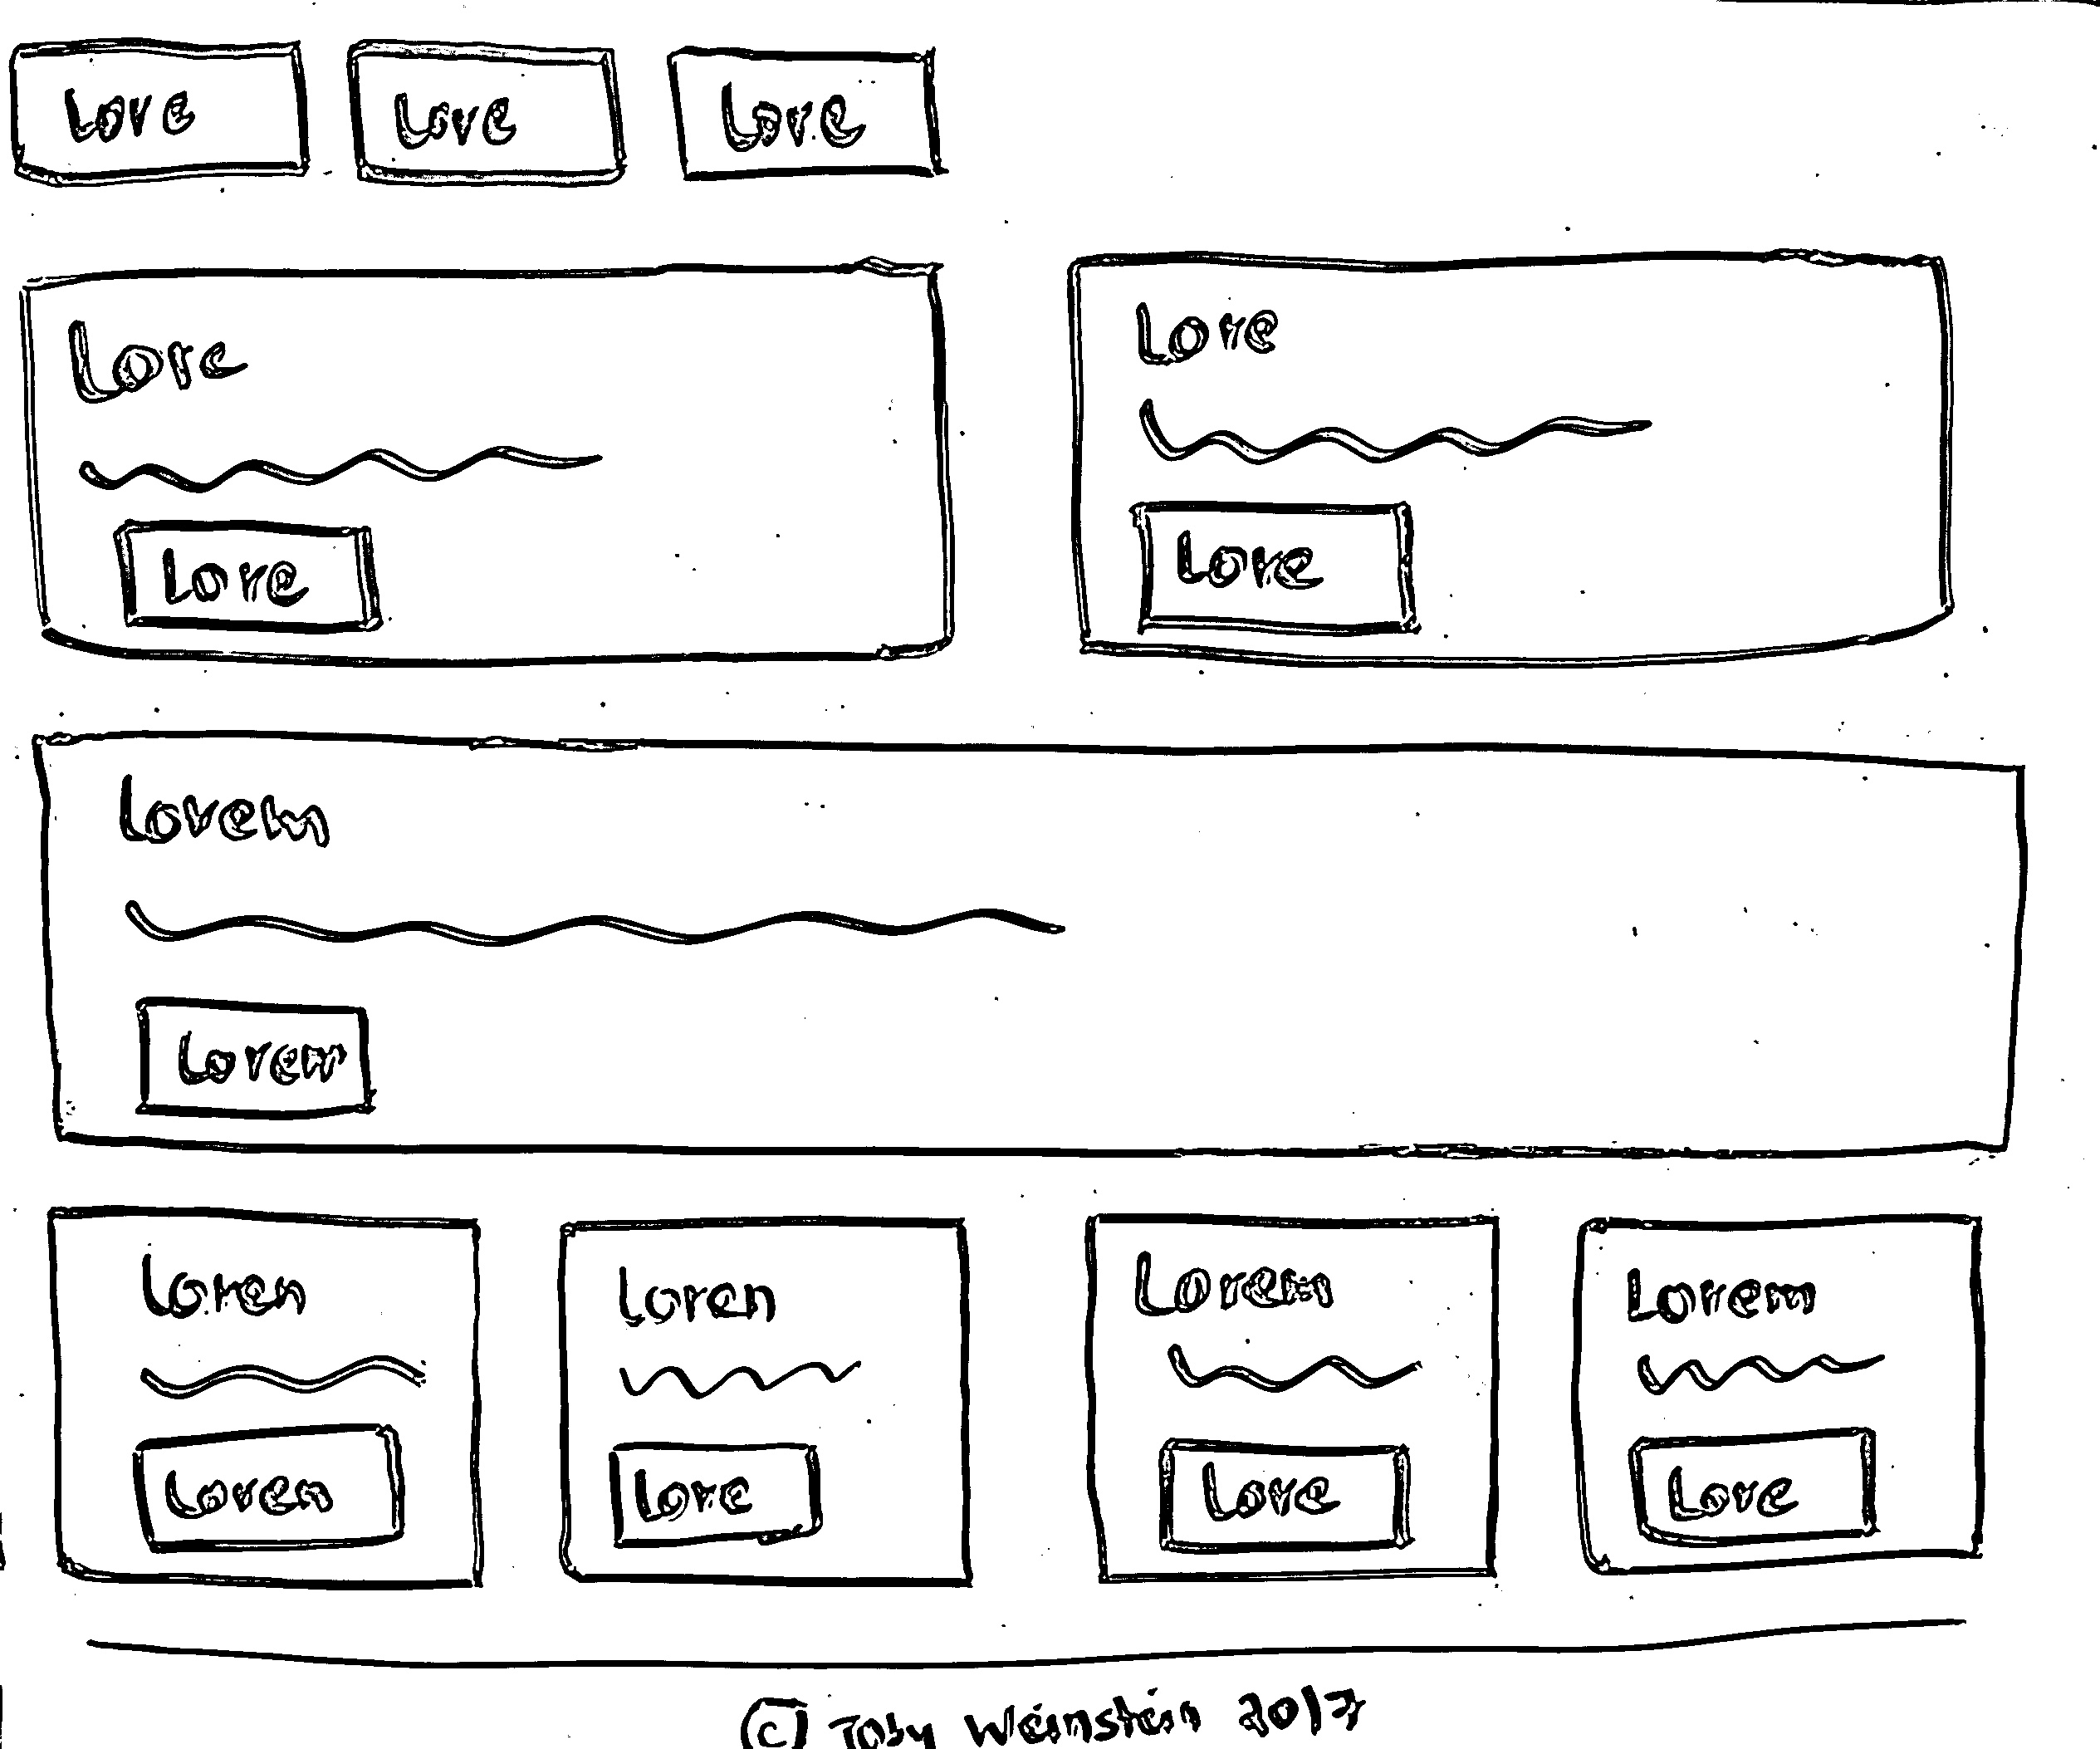 Lore Lore Lore
Lore Lore
Lore Lore
Lorem
Lorem
Loren Loren Lorem Lorem
Loren Lore Lore Lore
© Toby Weinstein 2017